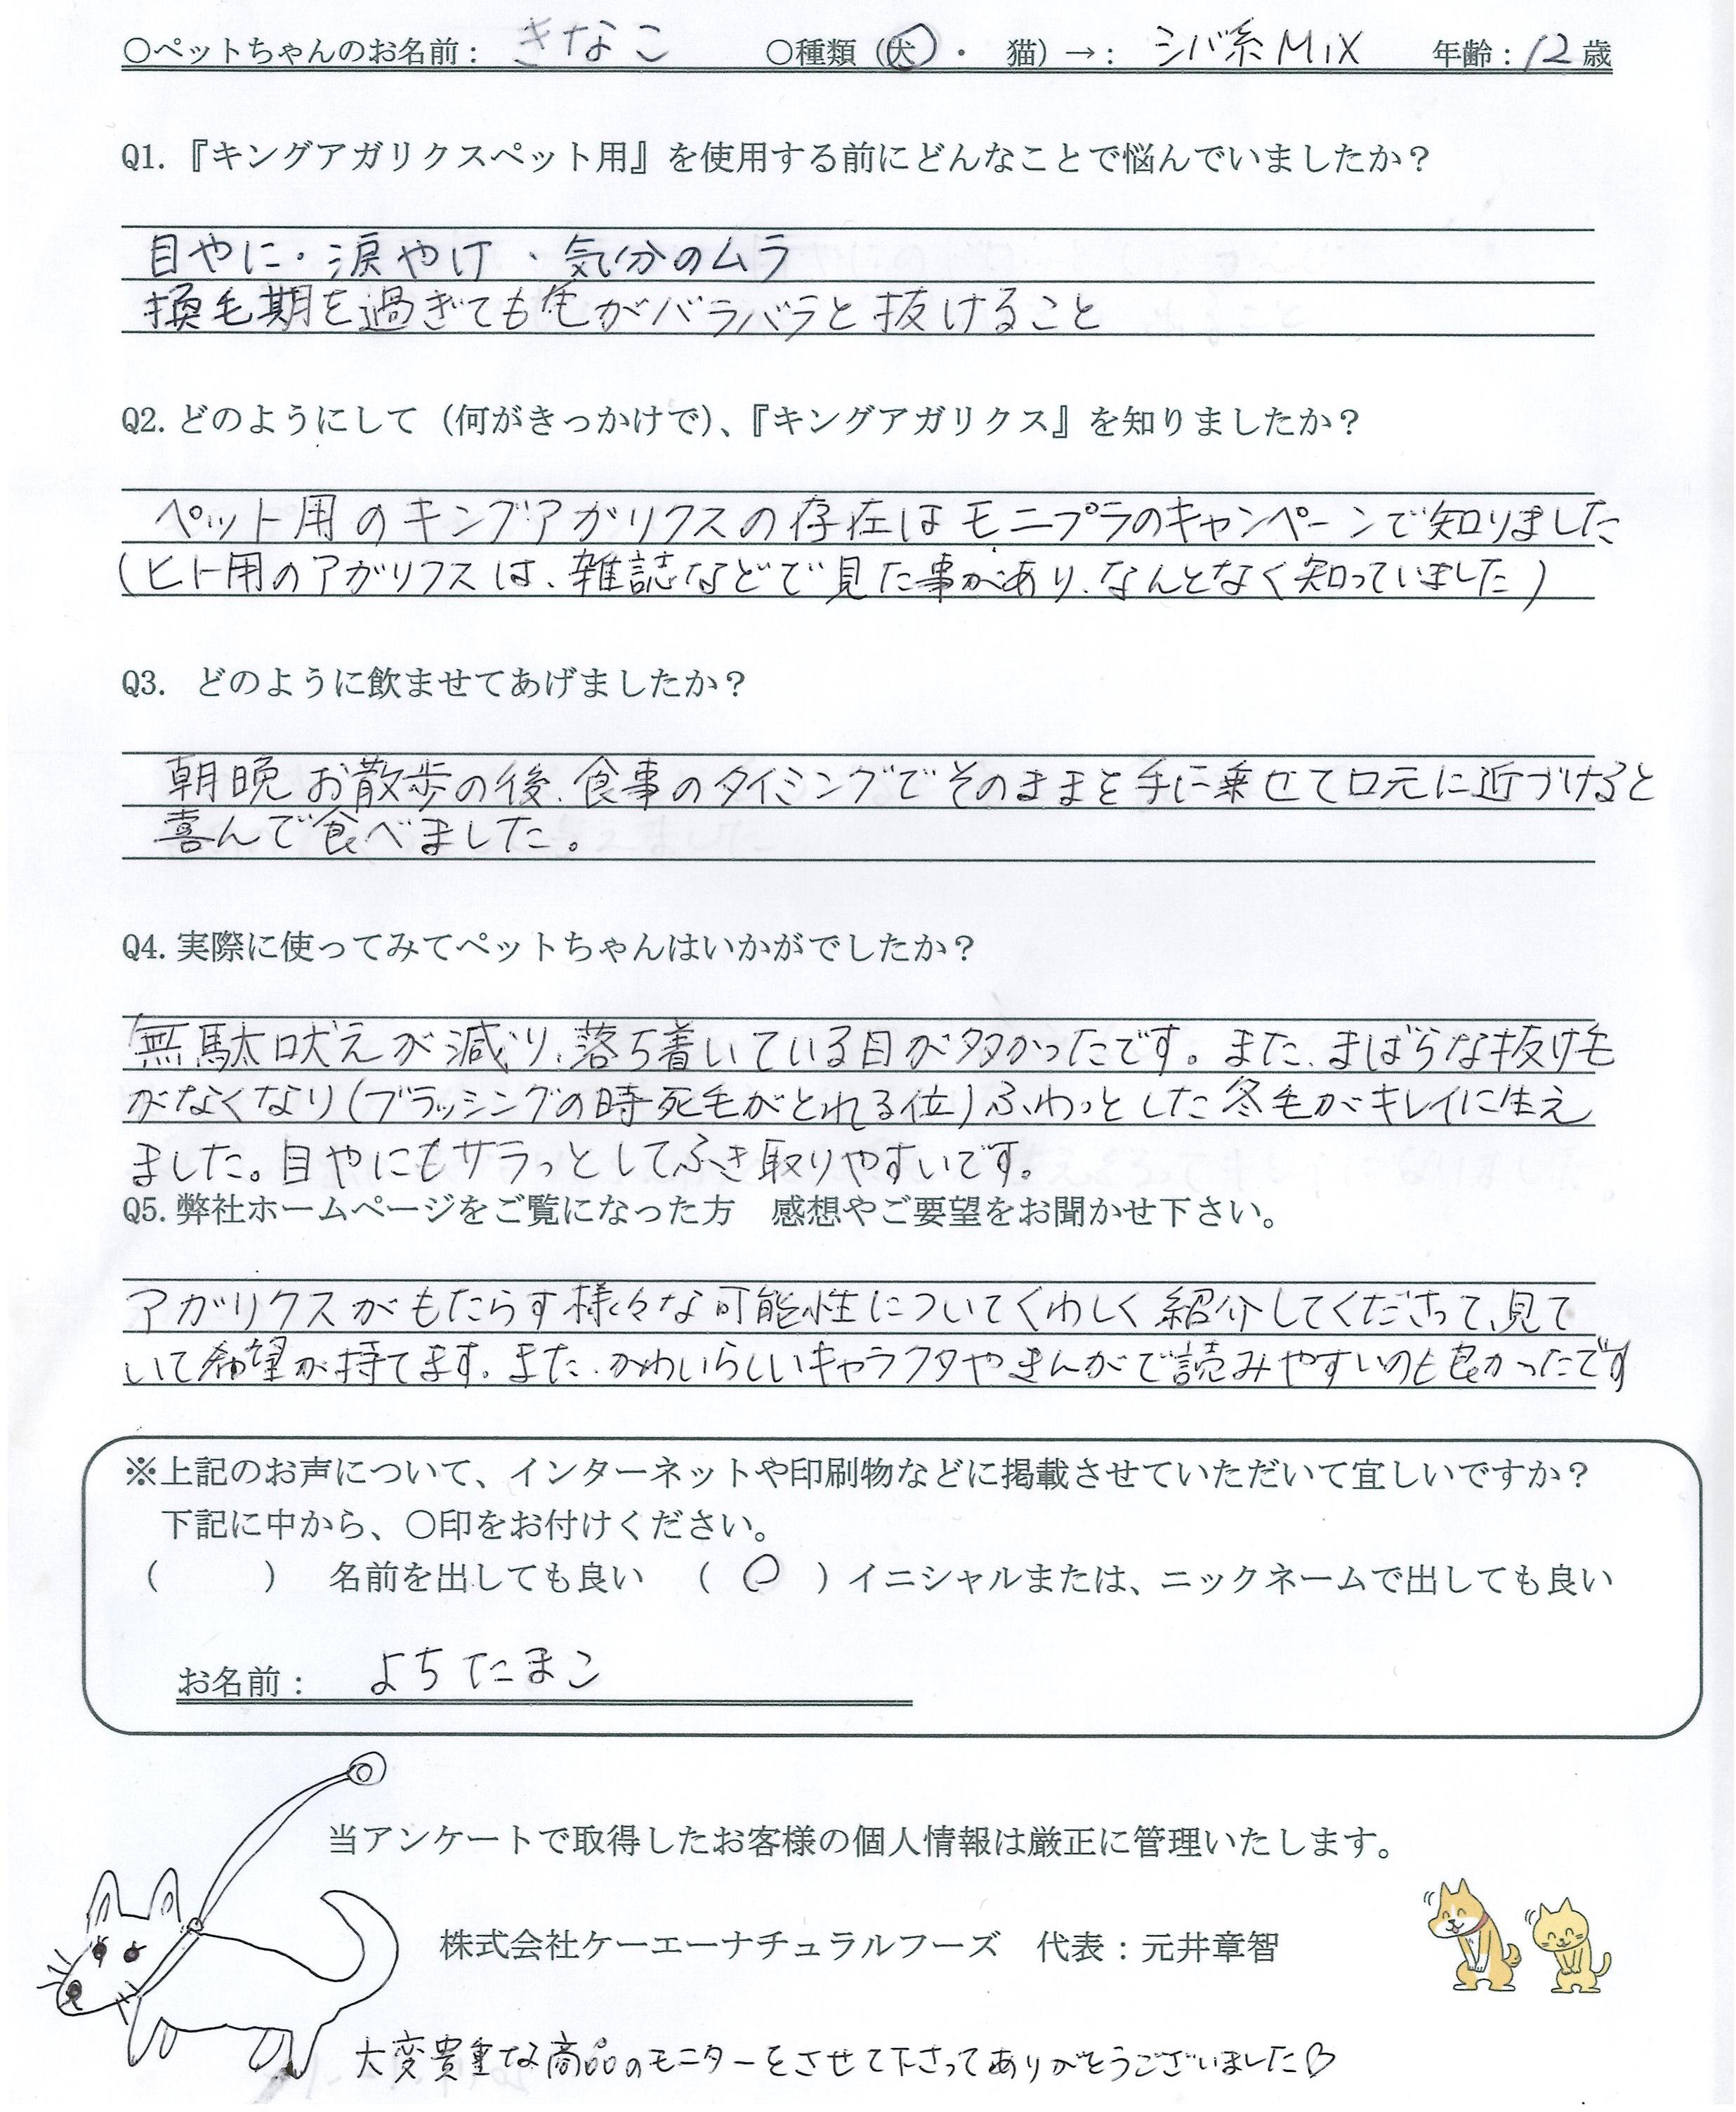 ○ペットちゃんのお名前： きなこ ○種類（犬・猫）→： シバ系MIX 年齢：12歳
Q1.『キングアガリクスペット用』を使用する前にどんなことで悩んでいましたか？
目やに・涙やけ・気分のムラ
換毛期を過ぎても毛がバラバラと抜けること
Q2.どのようにして（何がきっかけで）、『キングアガリクス』を知りましたか？
ペット用のキングアガリクスの存在はモニプラのキャンペーンで知りました
（ヒト用のアガリクスは、雑誌などで見た事があり、なんとなく知っていました）
Q3. どのように飲ませてあげましたか？
朝晩お散歩の後、食事のタイミングでそのままを手に乗せて口元に近づけると
喜んで食べました。
Q4.実際に使ってみてペットちゃんはいかがでしたか？
無駄吠えが減り、落ち着いている日が多かったです。また、まばらな抜け毛
がなくなり（ブラッシングの時死毛がとれる位）ふわっとした冬毛がキレイに生え
ました。目やにもサラっとしてふき取りやすいです。
Q5.弊社ホームページをご覧になった方　感想やご要望をお聞かせ下さい。
アガリクスがもたらす様々な可能性についてくわしく紹介してくださって、見て
いて希望が持てます。また、かわいらしいキャラクタやまんがで読みやすいのも良かったです
※上記のお声について、インターネットや印刷物などに掲載させていただいて宜しいですか？
下記に中から、○印をお付けください。
（　　　）　名前を出しても良い　（ ○ ）イニシャルまたは、ニックネームで出しても良い
お名前： よちたまこ
当アンケートで取得したお客様の個人情報は厳正に管理いたします。
株式会社ケーエーナチュラルフーズ　代表：元井章智
大変貴重な商品のモニターをさせて下さってありがとうございました♡